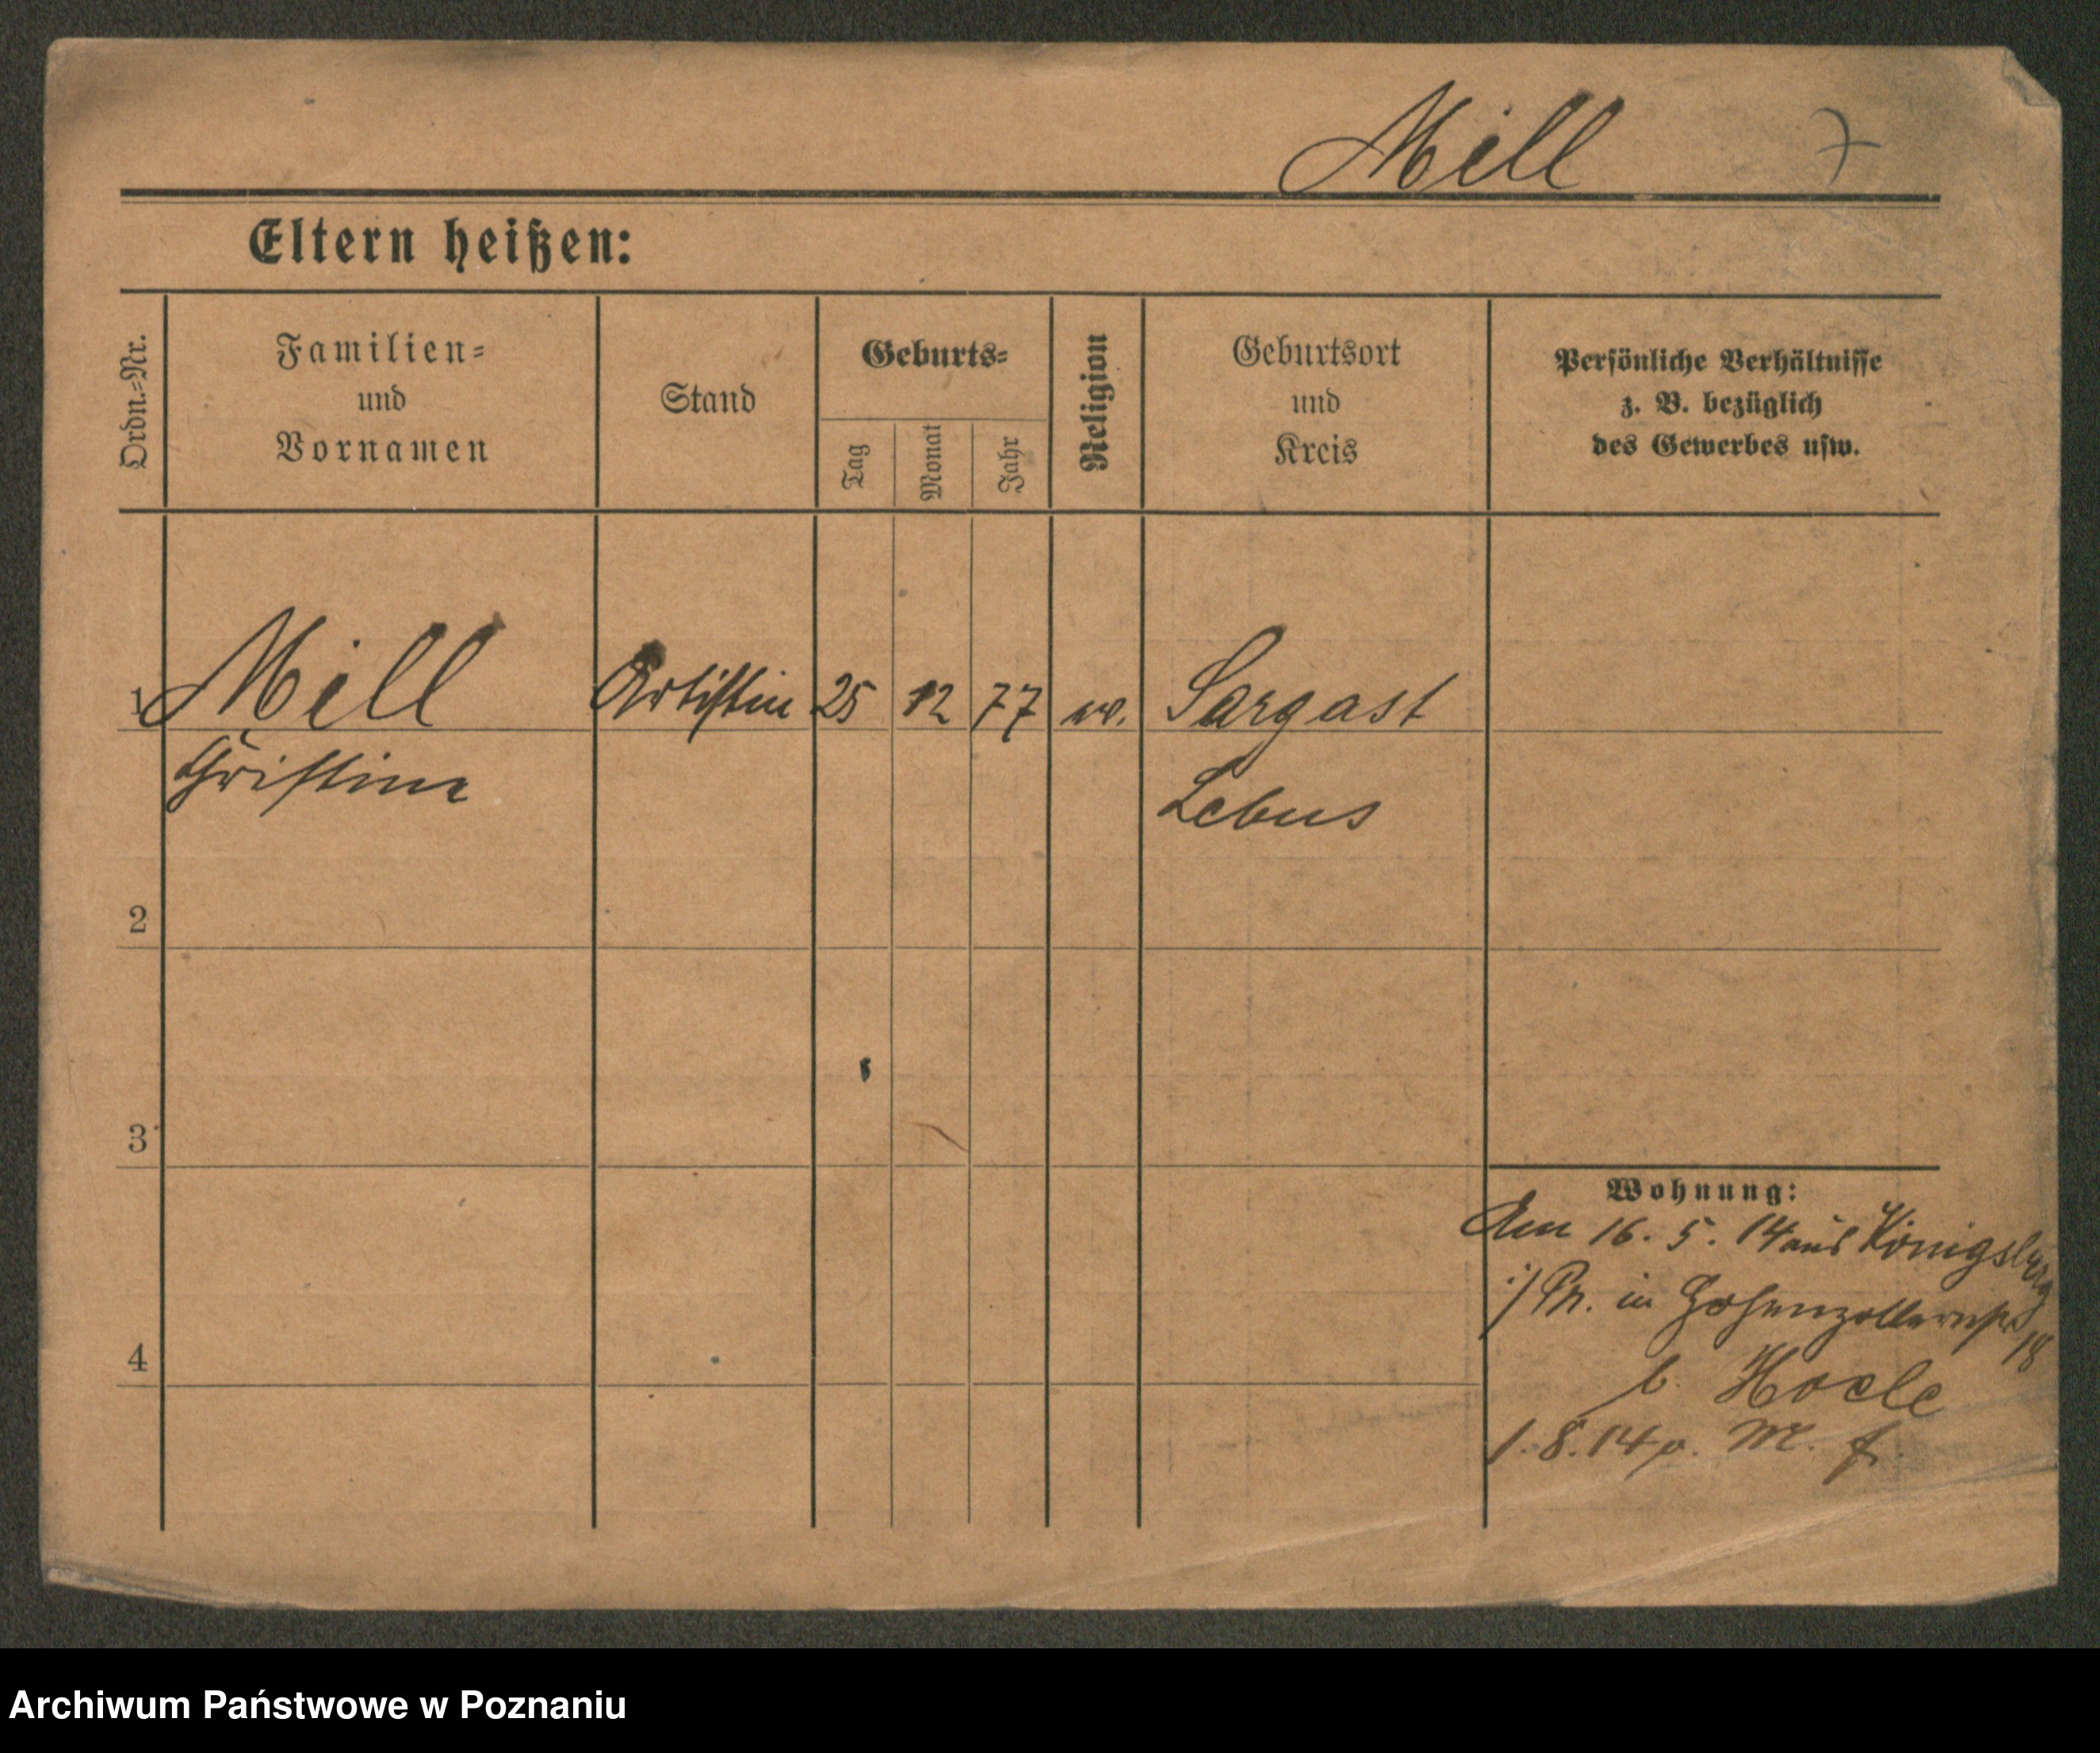 Mill 7
Eltern heißen:
Ordn.-Nr.
Familien-
und
Vornamen
Stand
Geburts-
Tag
Monat
Jahr
Religion
Geburtsort
und
Kreis
Persönliche Verhältnisse
z. B. bezüglich
des Gewerbes usw.
1 Mill Artistin 25 12 77 ev. Sargast
Christine Lebus
2
3
4
Wohnung:
Am 16. 5. 14 aus Königsberg
i/Pr. in Hohenzollernstr 18
b.
1. 8. 14 v. M. f.
Archiwum Państwowe w Poznaniu